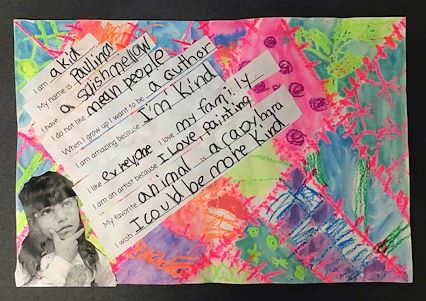 I am a kid
My name is Paulina
I have a sdishmellow
I do not like mean people
When I grow up I want to be a author
I am amazing because I'm kind
I like evreyone I love my family
I am an artist because I Love painting
My favorite animal is a capybara
I wish I could be more kind